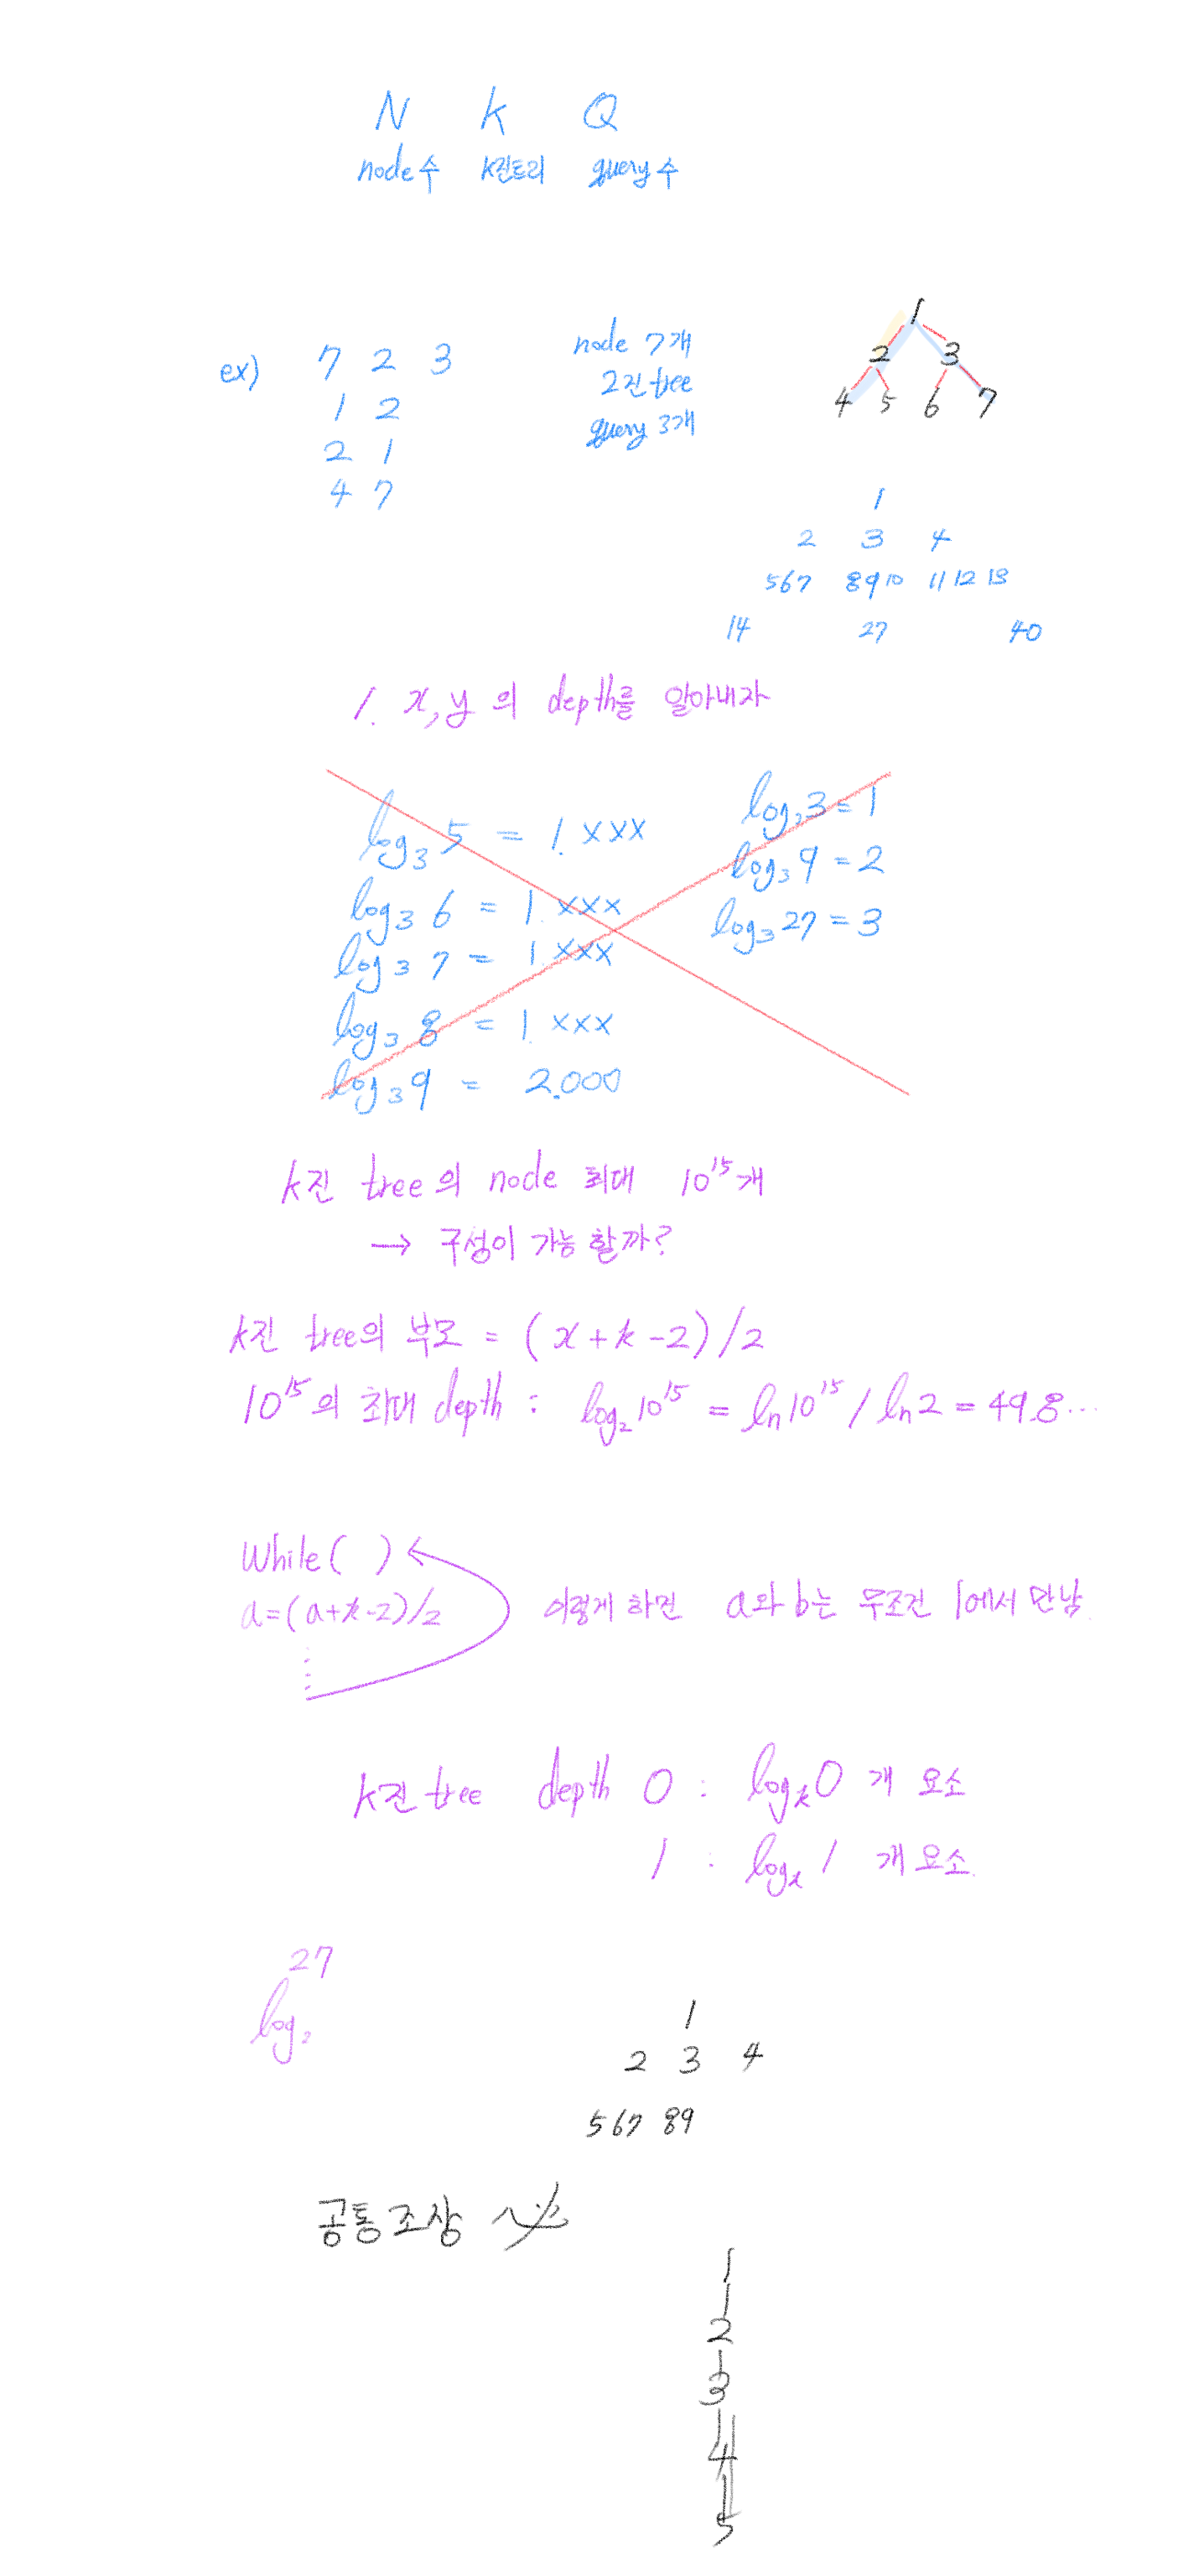 N K Q
node수 k진트리 query수
ex) 7 2 3
1 2
2 1
4 7
node 7개
2진 tree
query 3개
1
2 3
4 5 6 7
1
2 3 4
5 6 7 8 9 10 11 12 13
14 27 40
1. x, y 의 depth를 알아내자
log₃ 5 = 1.xxx
log₃ 6 = 1.xxx
log₃ 7 = 1.xxx
log₃ 8 = 1.xxx
log₃ 9 = 2.000
log₃ 3 = 1
log₃ 9 = 2
log₃ 27 = 3
k진 tree의 node 최대 10¹⁵개
→ 구성이 가능 할까?
k진 tree의 부모 = (x+k-2)/2
10¹⁵의 최대 depth : log₂10¹⁵ = ln10¹⁵ / ln2 = 49.8...
While( )
a=(a+k-2)/2
이렇게 하면 a와 b는 무조건 1에서 만남.
k진 tree depth 0 : logₖ0 개 요소
1 : logₖ1 개 요소.
27
log₂
1
2 3 4
5 6 7 8 9
공통조상
1
2
3
4
5